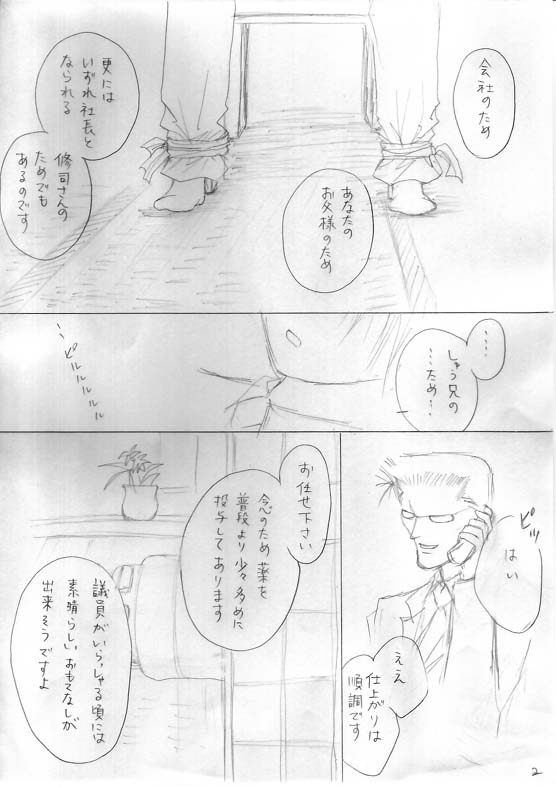 会社のため
あなたの
お父様のため
更には
いずれ社長と
なられる
修司さんの
ためでも
あるのです
‥‥
しゅう兄の
‥ため‥
‥ピルルルルル
ピッ
はい
ええ
仕上がりは
順調です
お任せ下さい
念のため薬を
普段より少々多めに
投与してあります
議員がいらっしゃる頃には
素晴らしいおもてなしが
出来そうですよ
2